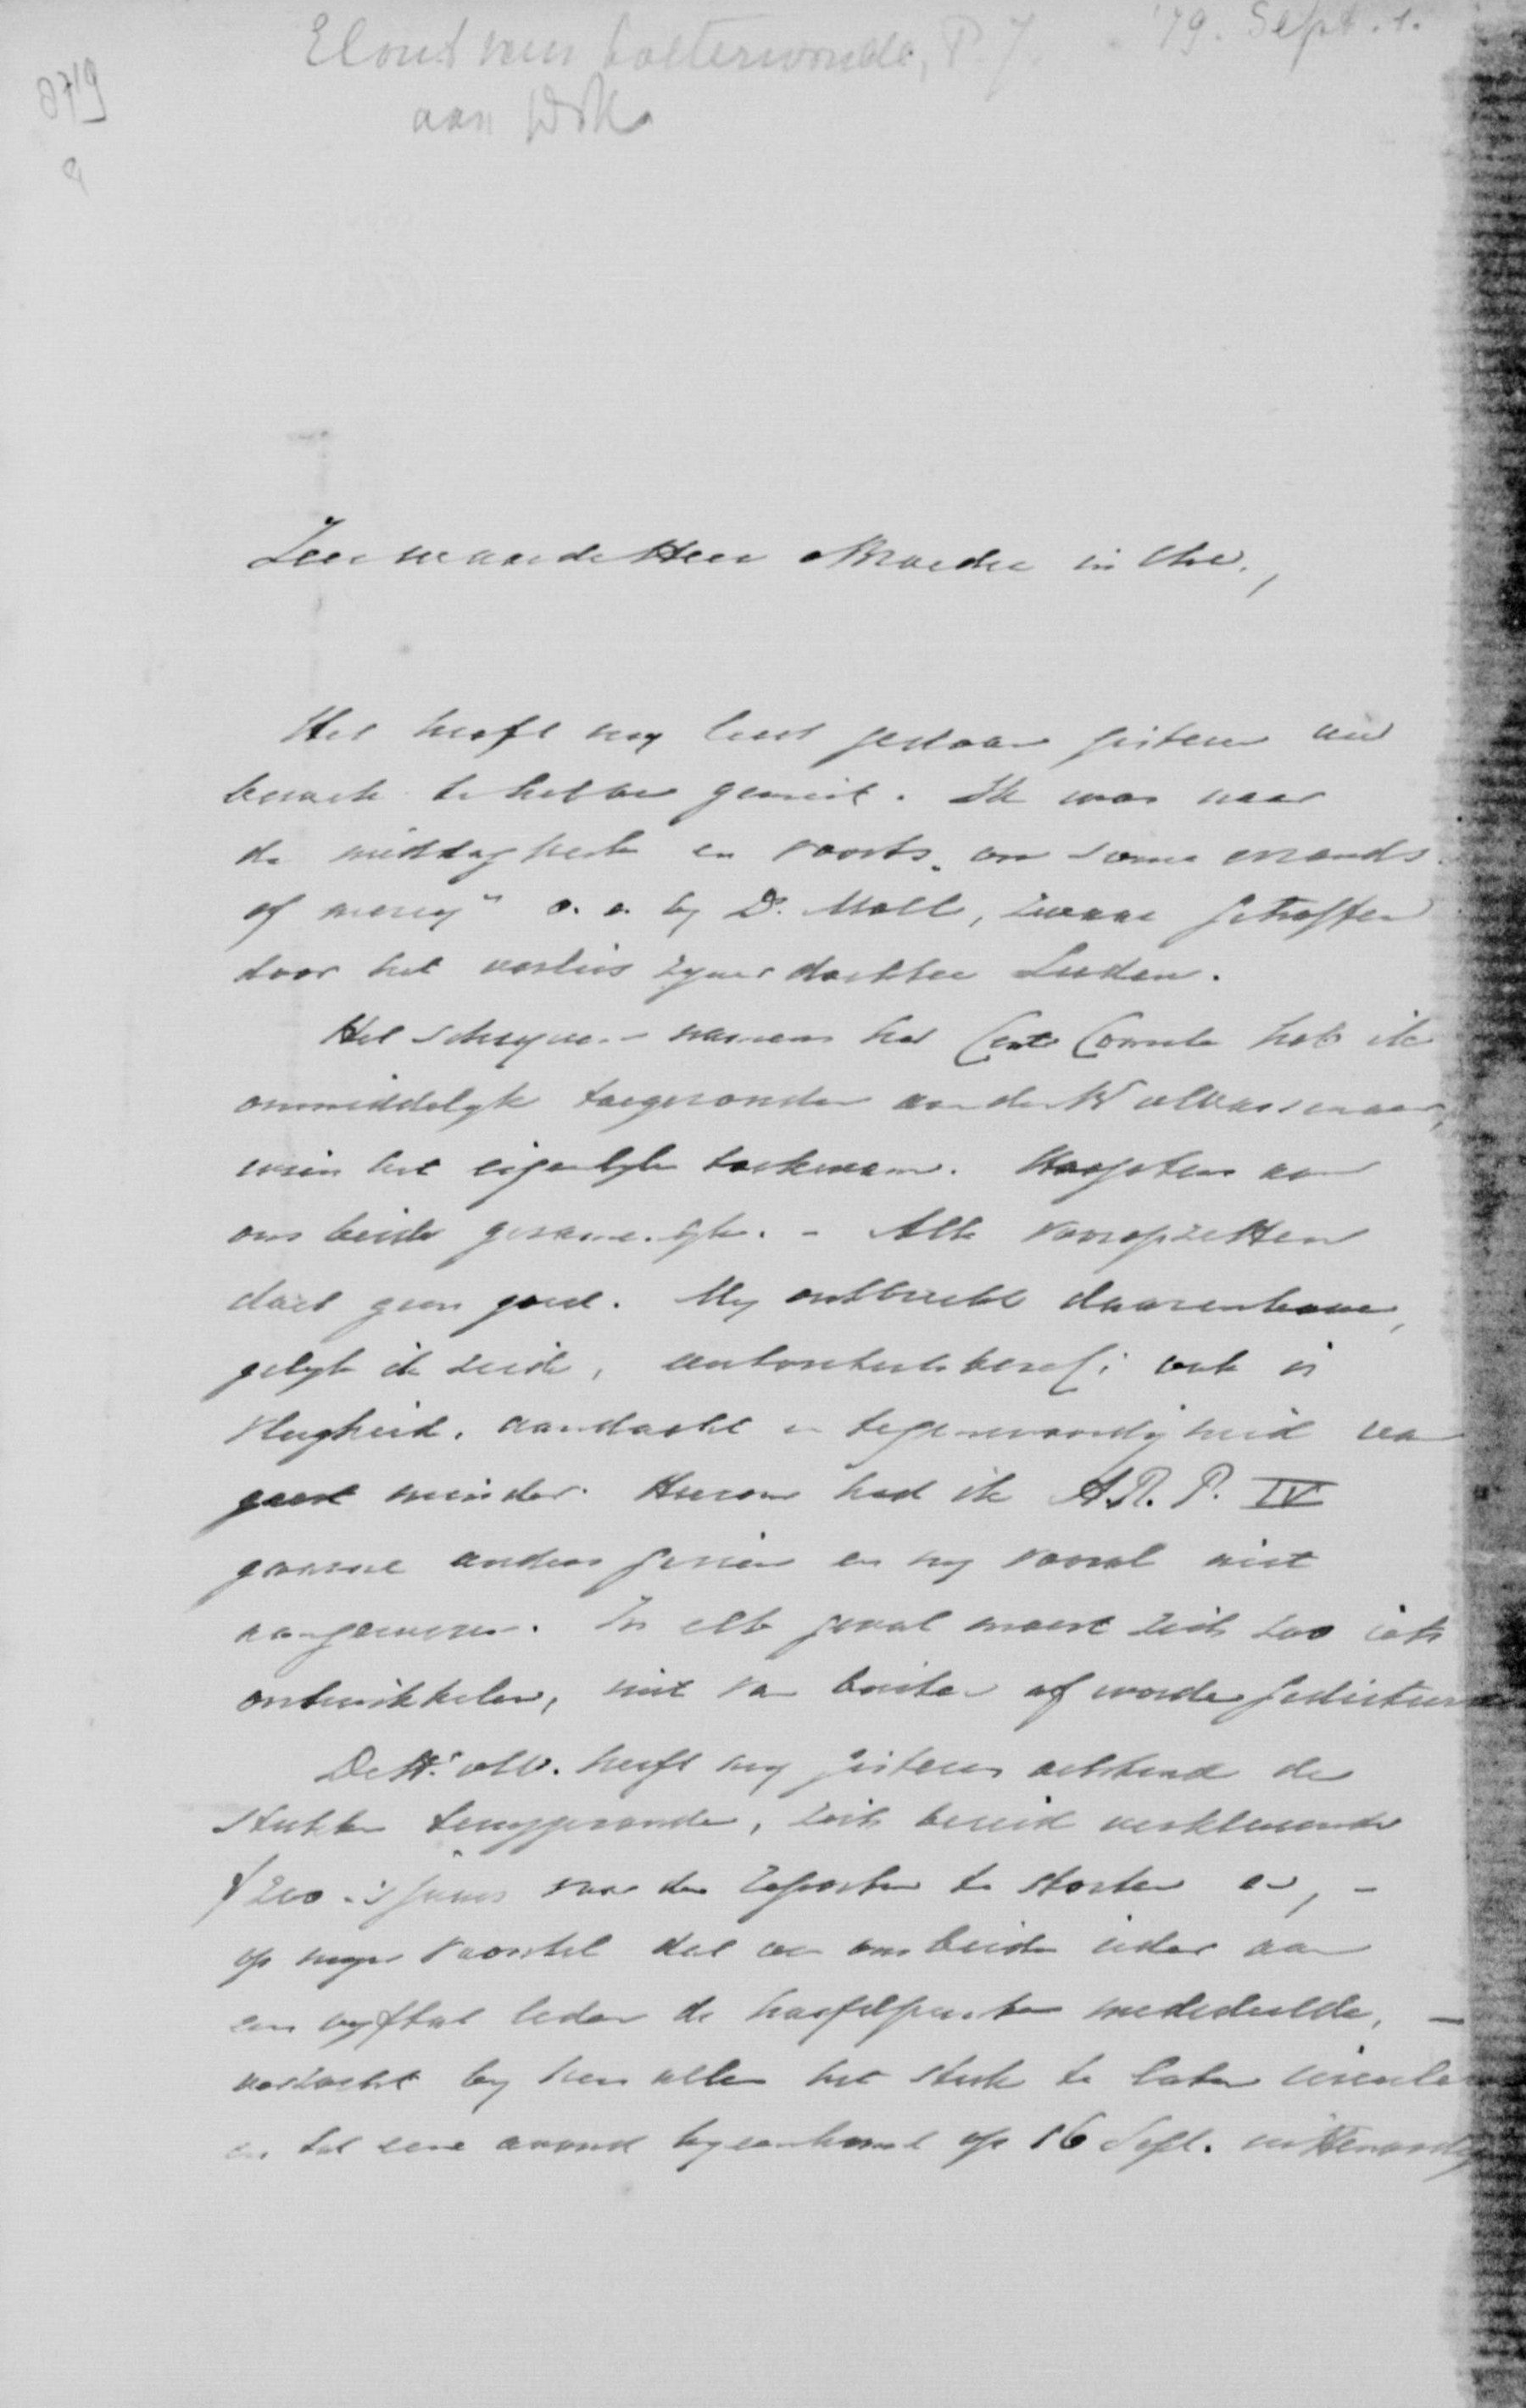 Elout van Soeterwoude, P. J. '79. Sept. 1.
aan Dr K.
Zeer waarde Heer & Broeder in Chr.,
Het heeft my leed gedaan gisteren uw
bezoek te hebben gemist. Ik was naar
de middagkerk en voorts "on some errands
of mercy" o.a. by Ds. Moll, zwaar getroffen
door het verlies zyner dochter Luden.
Het schryven namens het Centr Comité heb ik
onmiddelyk toegezonden aan den Hr v Wassenaar,
wien het eigenlyk toekwam. Hoogstens aan
ons beide gezamenlyk. - Alle vooropzetten
doet geen goed. My ontbreekt daarenboven,
gelyk ik zeide, autoriteitsbesef; ook is
vlugheid, aandacht en tegenwoordigheid van
geest minder. Hierom had ik A.R.P. IV
gaarne anders gezien en my vooral niet
aangewezen. In elk geval moest zich zoo iets
ontwikkelen, niet van buiten af worden gedicteerd
De Hr. v W. heeft my gisteren avond de
stukken teruggezonden, zich bereid verklarende
f200 's jaars voor den Zeposten te storten en, -
op myn voorstel dat we ons beiden ieder aan
een vyftal leden de hoofdpunten mededeelde, -
verzocht by hen allen het stuk te laten circuleren
en tot eene avond byeenkomst op 16 Sept. uittenoodig